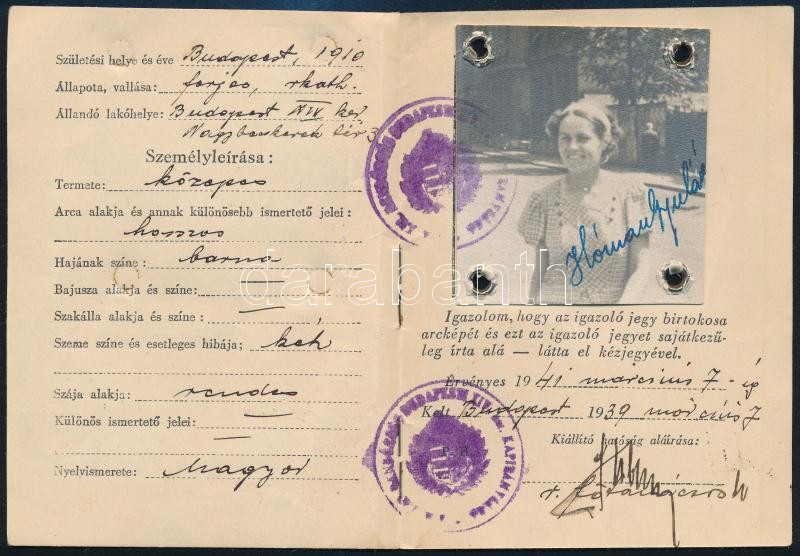 Születési helye és éve Budapest, 1910
Állapota, vallása: férjes, rkath.
Állandó lakóhelye: Budapest XIV ker
Nagybecskerek tér 3
Személyleírása:
Termete: közepes
Arca alakja és annak különösebb ismertető jelei:
hosszas
Hajának színe: barna
Bajusza alakja és színe: —
Szakálla alakja és színe: —
Szeme színe és esetleges hibája; kék
Szája alakja: rendes
Különös ismertető jelei: —
—
Nyelvismerete: Magyar
Hóman Gyuláné
Igazolom, hogy az igazoló jegy birtokosa
arcképét és ezt az igazoló jegyet sajátkezű-
leg írta alá — látta el kézjegyével.
Érvényes 1941 március 7-ig
Kelt, Budapest 1939 március 7
Kiállító hatóság aláírása:
P. H.
darabanth